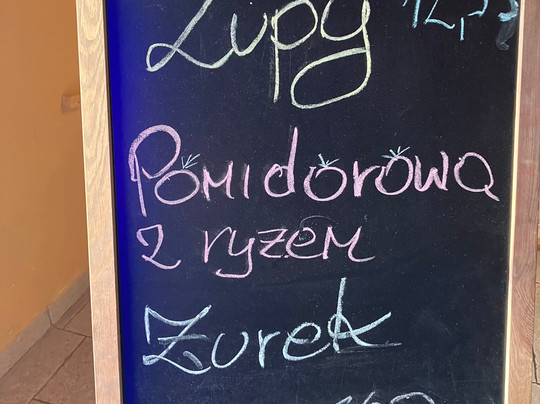 Zupy
Pomidorowa
z ryżem
Żurek